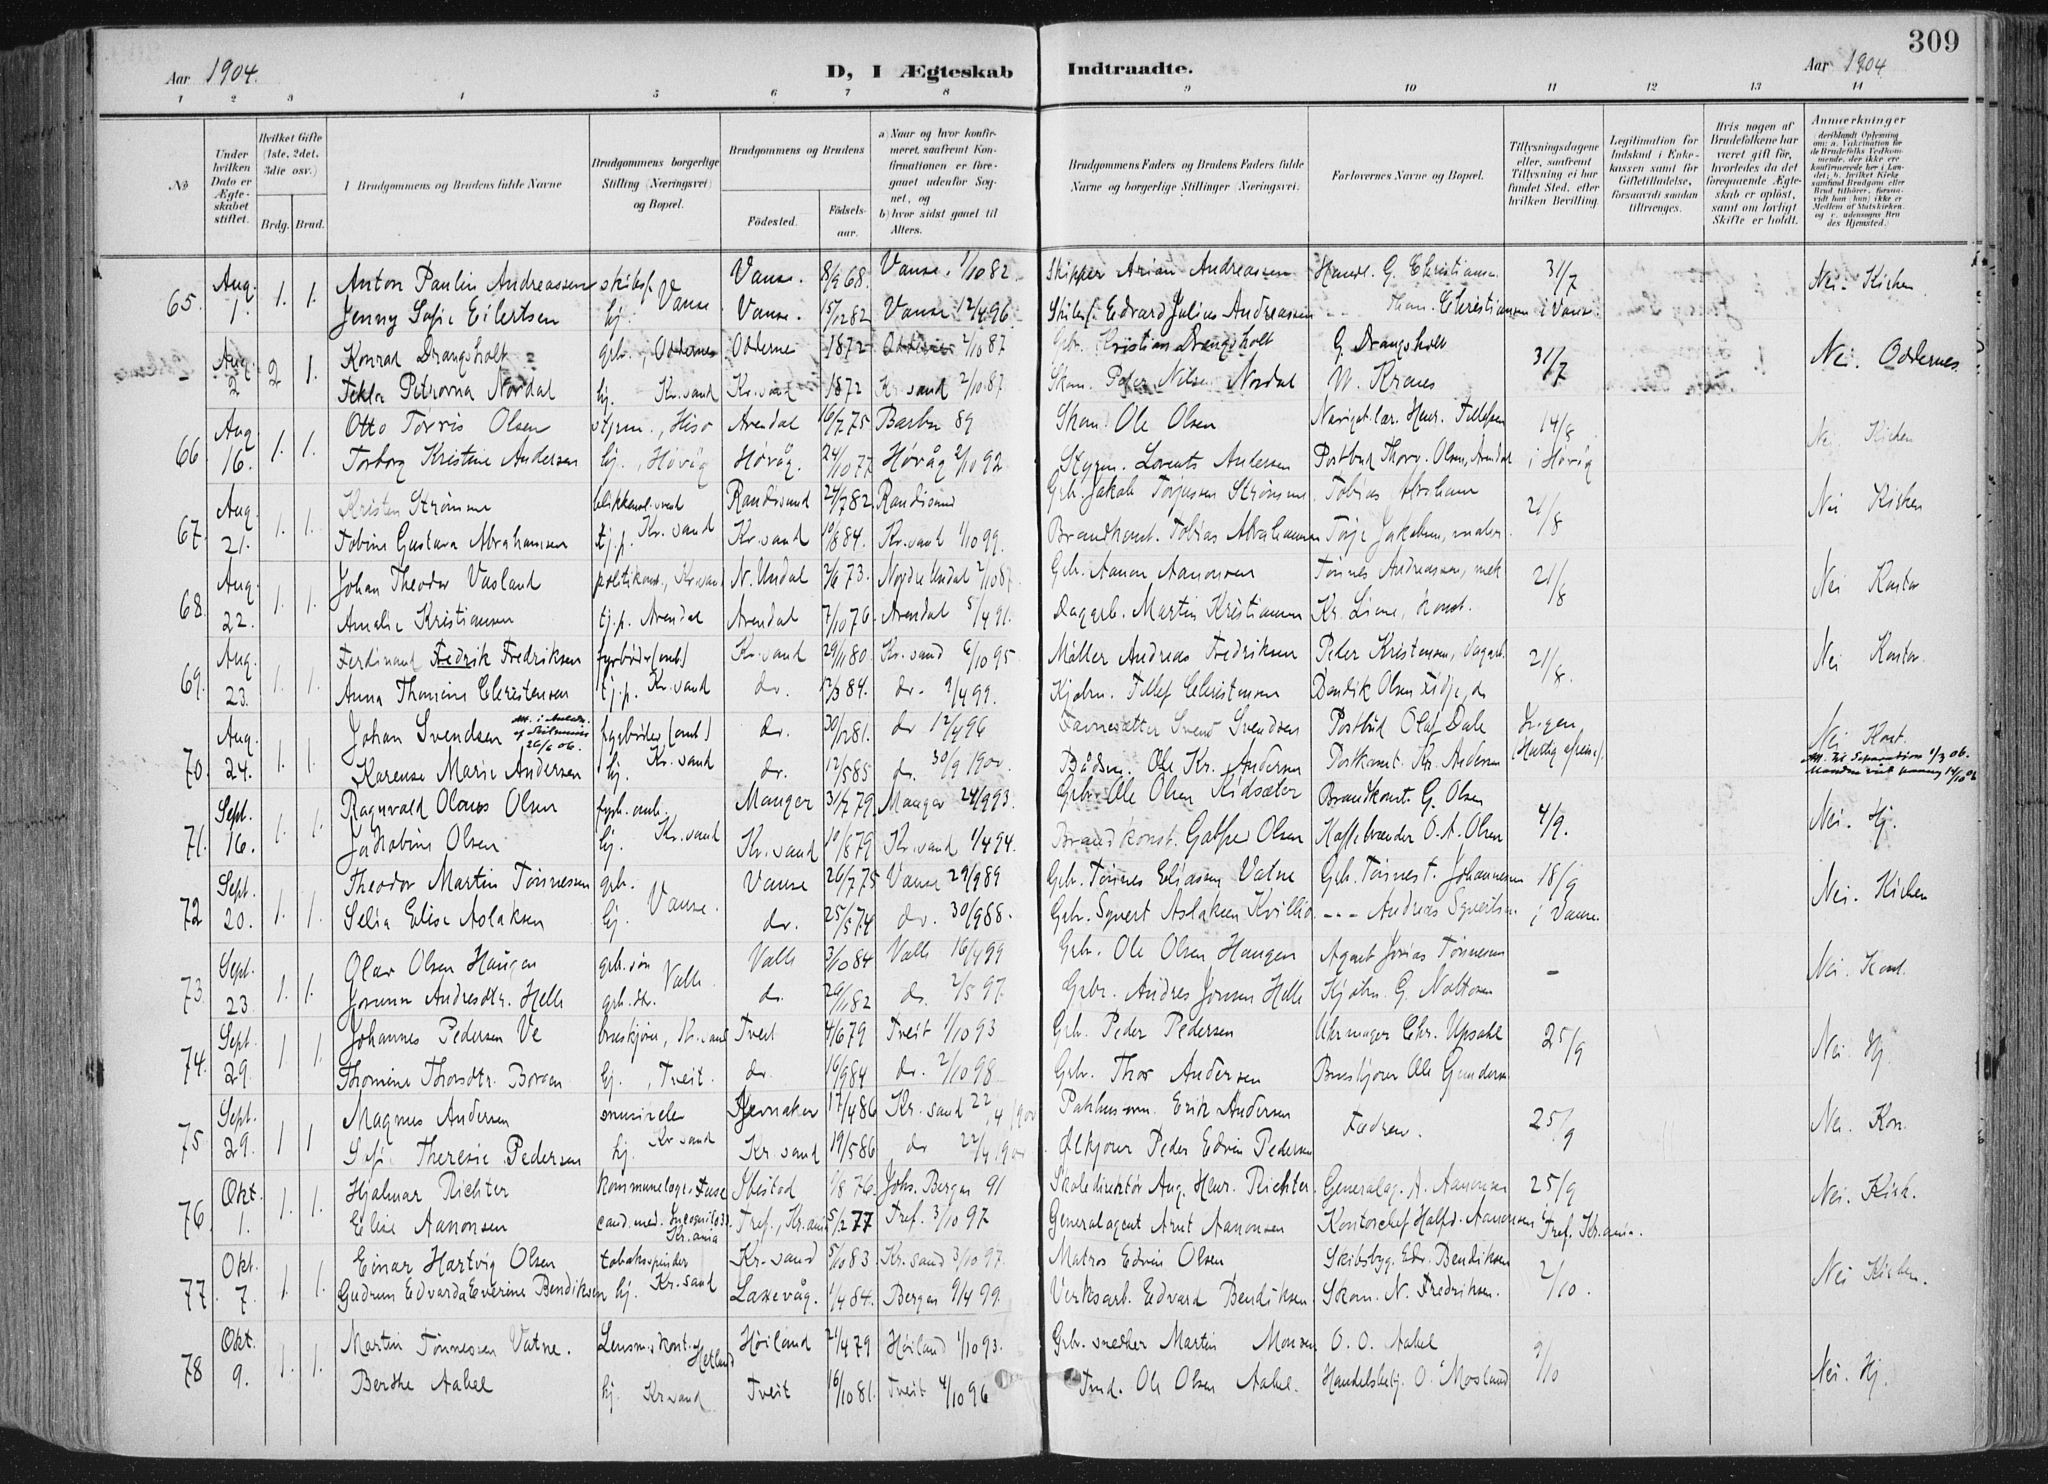 309
Aar 1904.
D, I Ægteskab Indtraadte.
Aar 1904
1 2 3 4 5 6 7 8 9 10 11 12 13 14
№
Under hvilken Dato er Ægteskabet stiftet.
Hvilket Gifte (1ste, 2det, 3die osv.)
Brdg. Brud.
I Brudgommens og Brudens fulde Navne
Brudgommens borgerlige Stilling (Næringsvei) og Bopæl.
Brudgommens og Brudens
Fødested.
Fødselsaar.
a) Naar og hvor konfirmeret, saafremt Konfirmationen er foregaaet udenfor Sognet, og
b) hvor sidst gaaet til Alters.
Brudgommens Faders og Brudens Faders fulde Navne og borgerlige Stillinger (Næringsvei).
Forlovernes Navne og Bopæl.
Tillysningsdagene eller, saafremt Tillysning ei har fundet Sted, efter hvilken Bevilling.
Legitimation for Indskud i Enkekassen samt for Giftetilladelse, forsaavidt saadan tiltrænges.
Hvis nogen af Brudefolkene har været gift før, hvorledes da det foregaaende Ægteskab er opløst, samt om lovligt Skifte er holdt.
Anmærkninger
65. Aug. 1. 1. 1. Anton Paulin Andreassen skibsf. Vanse Vanse. 8/9 68. Vanse. 1/10 82. Skipper Arian Andreassen Handl. G. Christiansen 31/7 Nei. Kirken
Jenny Sofie Eilertsen hj. Vanse. 15/12 82 Vanse 12/4 96. Skibsf. Edvard Julius Andreassen -- Thom. Christiansen i Vanse.
- Aug. 2 2 1. Konrad Drangsholt grb., Oddernes Odderne 1872 Oddernes 2/10 87 Grb. Kristian Drangsholt G. Drangsholt 31/7 Nei. Oddernes
Tekla Petrovna Nordal hj. Kr.sand Kr.sand 1872 Kr.sand 2/10 87. Skom. Peter Nilsen Nordal W. Krenes
66. Aug 16. 1. 1. Otto Torris Olsen styrm., Hisø Arendal 16/7 75 Barbu 89 Skom. Ole Olsen Navigat.lær. Henr. Tellefsen 14/8 Nei Kirken
Torborg Kristine Andersen hj., Høvåg Høvåg. 24/10 77 Høvåg 2/10 92. Styrm. Lorents Andersen Postbud Thorv. Olsen, Arendal i Høvåg
67. Aug. 21. 1. 1. Kristen Strømme blikkensl.svend Randøsund 24/7 82. Randøsund Grb. Jakob Torjussen Strømme Tobias Abraham 21/8 Nei Kirken
Tobine Gustava Abrahamsen tj.p. Kr.sand Kr.sand 10/8 84. Kr.sand 1/10 99. Brandkonst. Tobias Abrahamsen Terje Jakobsen, maler.
68. Aug. 22. 1. 1. Johan Theodor Vasland politikonst., Kr.sand N. Undal 2/6 73. Nordre Undal 2/10 87. Grb. Aanon Aanonsen Tønnes Andreassen, mek 21/8 Nei Kontor
Amalie Kristiansen tj.p. Arendal Arendal 7/10 76 Arendal 5/4 91. Daggrb. Martin Kristiansen Kr. Liane, konst.
69. Aug. 23. 1. 1. Ferdinand Fredrik Fredriksen fyrbøder (amb) Kr.sand 29/11 80 Kr.sand 6/10 95 Møller Andreas Fredriksen Peder Kristensen, dagarb. 21/8. Nei Kontor
Anna Thomine Christensen tj.p. Kr.sand do. 12/3 84. do. 9/4 99. Kjøbm. Tellef Christensen Bendik Olsen Eidje, do
70. Aug. 24. 1. 1. Johan Svendsen fyrbøder (amb) do. 30/12 81. do 12/4 96 Favnesætter Svend Svendsen Postbud Olaf Dale Ingen Nei Kont.
26/6 06.
Karense Marie Andersen hj. Kr.sand do. 12/5 85 do. 30/9 1900. Bådsm. Ole Kr. Andersen Postkonst. Kr. Andersen (Hurtig afreise). Att. til Separation 1/3 06.
71. Sept. 16. 1. 1. Ragnvald Olaves Olsen fyrb. amb. Manger 31/7 79 Manger 24/9 93. Grb. Ole Olsen Kidsæter Brandkonst. G. Olsen 4/9. Nei. Hj.
Jakobine Olsen hj. Kr.sand Kr.sand 10/8 79 Kr.sand 1/4 94. Brandkonst. Gabfred Olsen Kaffebrænder O. A. Olsen
72 Sept. 20. 1. 1. Theodor Martin Tønnessen grb. Vanse. Vanse 26/7 75 Vanse 29/9 89 Grb. Tønnes Eliasen Vatne Grb. Tønnes T. Johannesen 18/9 Nei. Kirken
Selia Elise Aslaksen hj do. 25/5 74 do. 30/9 88. Grb. Syvert Aslaksen Kvilhø --- Andreas Syvertsen i Vanse.
73. Sept. 23. 1. 1. Olav Olsen Haugen grb.søn Valle Valle 3/10 84 Valle 16/4 99 Grb. Ole Olsen Haugen Agent Jonas Tønnesen - Nei. Kont.
Jorunn Andresdtr. Helle grb.dtr. do. 26/11 82 do. 2/5 97. Grbr. Andres Jonsen Helle Kjøbm. G. Noltesen
74. Sept 29. 1 1. Johannes Pedersen Ve bruskjører, Kr.sand Tveit 4/6 79 Tveit 1/10 93 Grb. Peder Pedersen Uhrmager Chr. Upsahl 25/9 Nei. Hj
Thomine Thorsdtr. Boraen hj., Tveit. do. 16/9 84 do. 2/10 98. Grb. Thor Andersen Bruskjører Ole Gundersen
75 Sept. 29. 1 1 Magnus Andersen Jevnaker 17/4 86 Kr.sand 22/4 1900 Pakhusm. Erik Andersen Fædren. 25/9 Nei. Kon.
Sofie Theresie Pedersen hj. Kr.sand Kr.sand 19/5 86 do 22/4 1900 Ølkjører Peder Edvin Pedersen
76. Okt. 1. 1. 1. Hjalmar Richter kommunelæge Fuse Ibestad 1/8 76. Johs. Bergen 91 Skoledirektør Aug. Henr. Richter Generalag. A. Aanonsen 25/9 Nei. Kirk.
Elise Aanonsen cand.med. Incognitogd. Kr.ania Tref., Kr.ania 5/2 77 Tref. 3/10 97 Generalagent Arnt Aanonsen Kontorchef Halfd. Aanonsen i Tref. Kr.ania.
77. Okt. 7. 1. 1. Einar Hartvig Olsen tobakspinder Kr.sand 5/10 83 Kr.sand 3/10 97. Matros Edvin Olsen Skibsbyg. Edv. Bendiksen 2/10. Nei Kirken.
Gudrun Edvarda Everine Bendiksen hj. Kr.sand Laxevåg. 1/4 84. Bergen 9/4 99. Verksarb. Edvard Bendiksen Skom. N. Fredriksen.
78 Okt. 9. 1. 1. Martin Tønnessen Vatne. Lensm.kont. Hetland Høiland 21/4 79 Høiland 1/10 93. Grb. snedker Martin Monsen O. O. Aabel 9/10 Nei. Hj.
Berthe Aabel hj. Kr.sand Tveit 16/10 81. Tveit 4/10 96 Tmd. Ole Olsen Aabel. Handelsbetj. O. Mosland